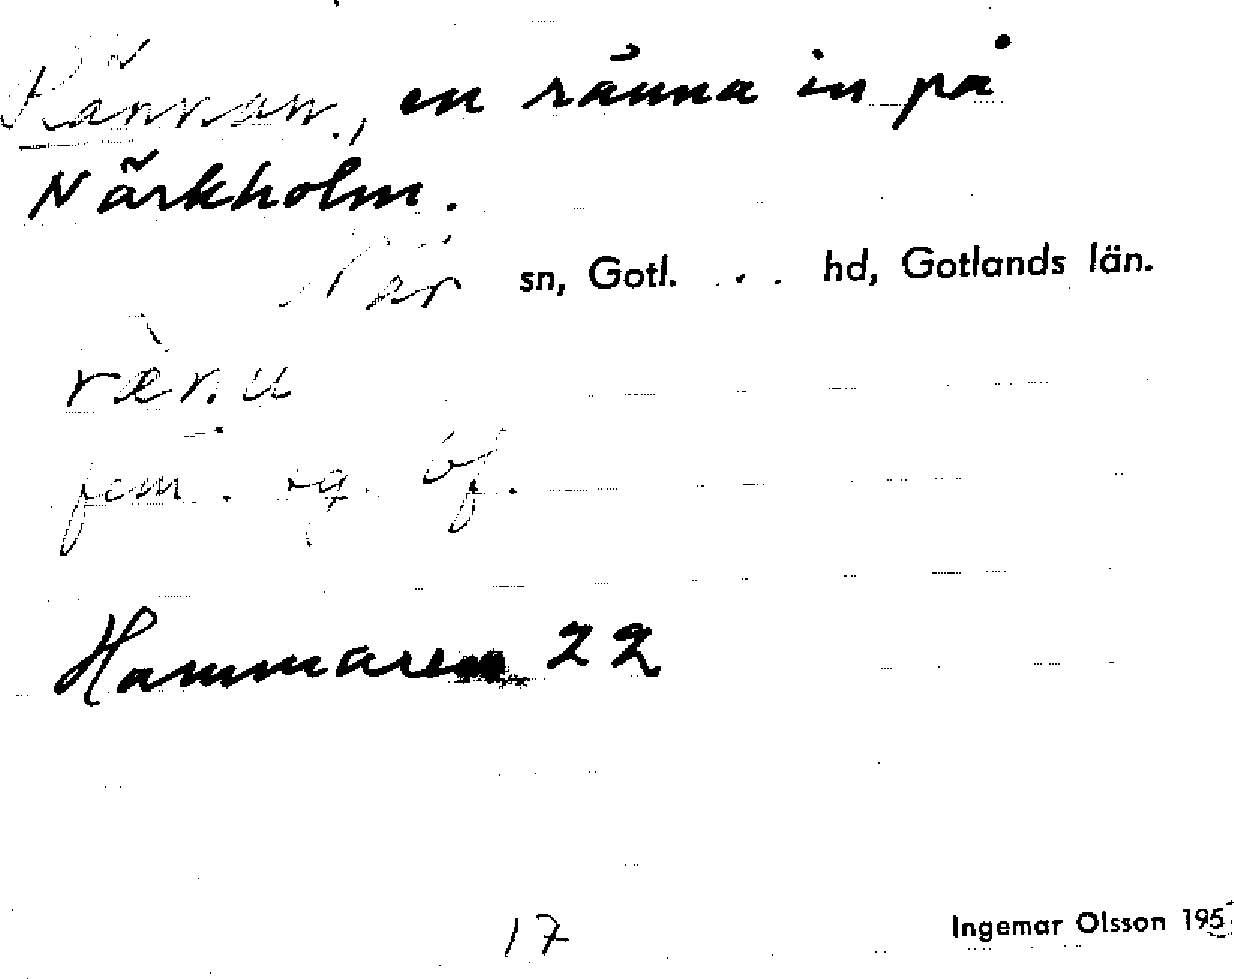 Rännan, en ränna in på
Närkholm.
När sn, Gotl. . . hd, Gotlands län.
rær.u
fem. sg. bf.
Hammaren 22
17
Ingemar Olsson 195